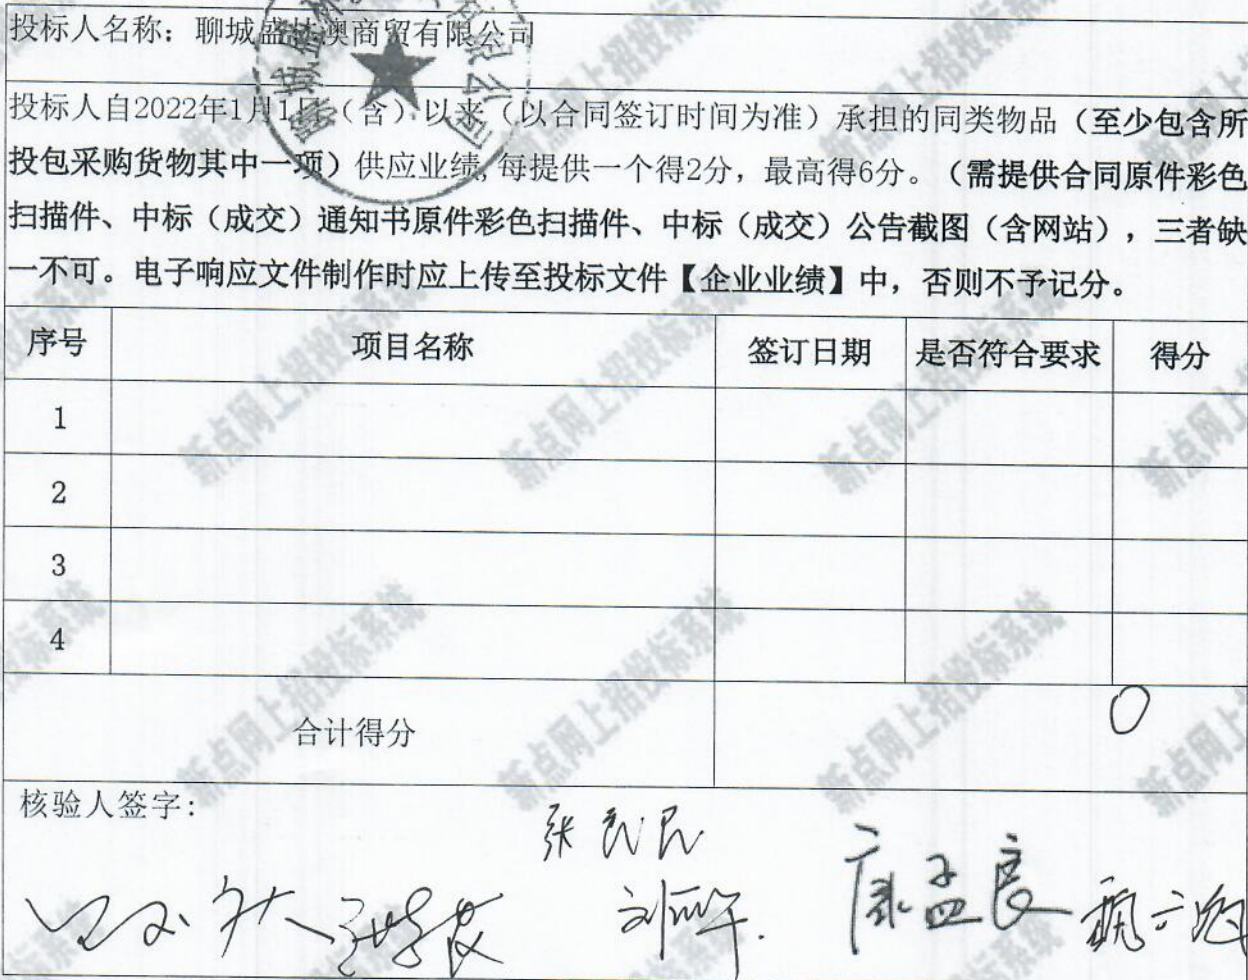 投标人名称：聊城盛林澳商贸有限公司
投标人自2022年1月1日（含）以来（以合同签订时间为准）承担的同类物品（至少包含所
投包采购货物其中一项）供应业绩，每提供一个得2分，最高得6分。（需提供合同原件彩色
扫描件、中标（成交）通知书原件彩色扫描件、中标（成交）公告截图（含网站），三者缺
一不可。电子响应文件制作时应上传至投标文件【企业业绩】中，否则不予记分。
序号 项目名称 签订日期 是否符合要求 得分
1
2
3
4
合计得分 0
核验人签字：
康孟良
新点网上招投标系统